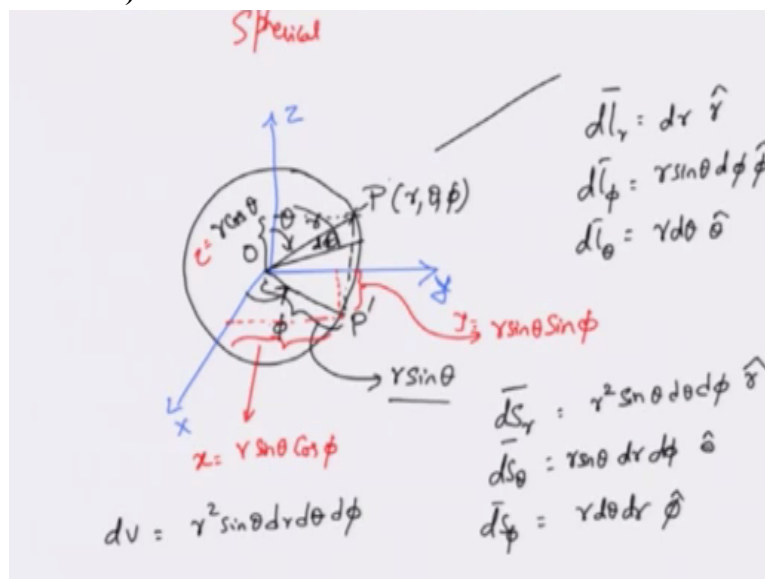 Spherical
Z
dl̅ᵣ = dr r̂
dl̅ᵩ = rsinθ dϕ ϕ̂
dl̅θ = rdθ θ̂
P(r,θ,ϕ)
rcosθ
θ
r
dθ
O
y
ϕ
P'
y= rsinθ Sinϕ
rsinθ
x
x= r sinθ Cosϕ
dS̅ᵣ = r² Sinθ dθ dϕ r̂
dS̅θ = rsinθ dr dϕ θ̂
dS̅ᵩ = rdθdr ϕ̂
dv = r² sinθ dr dθ dϕ